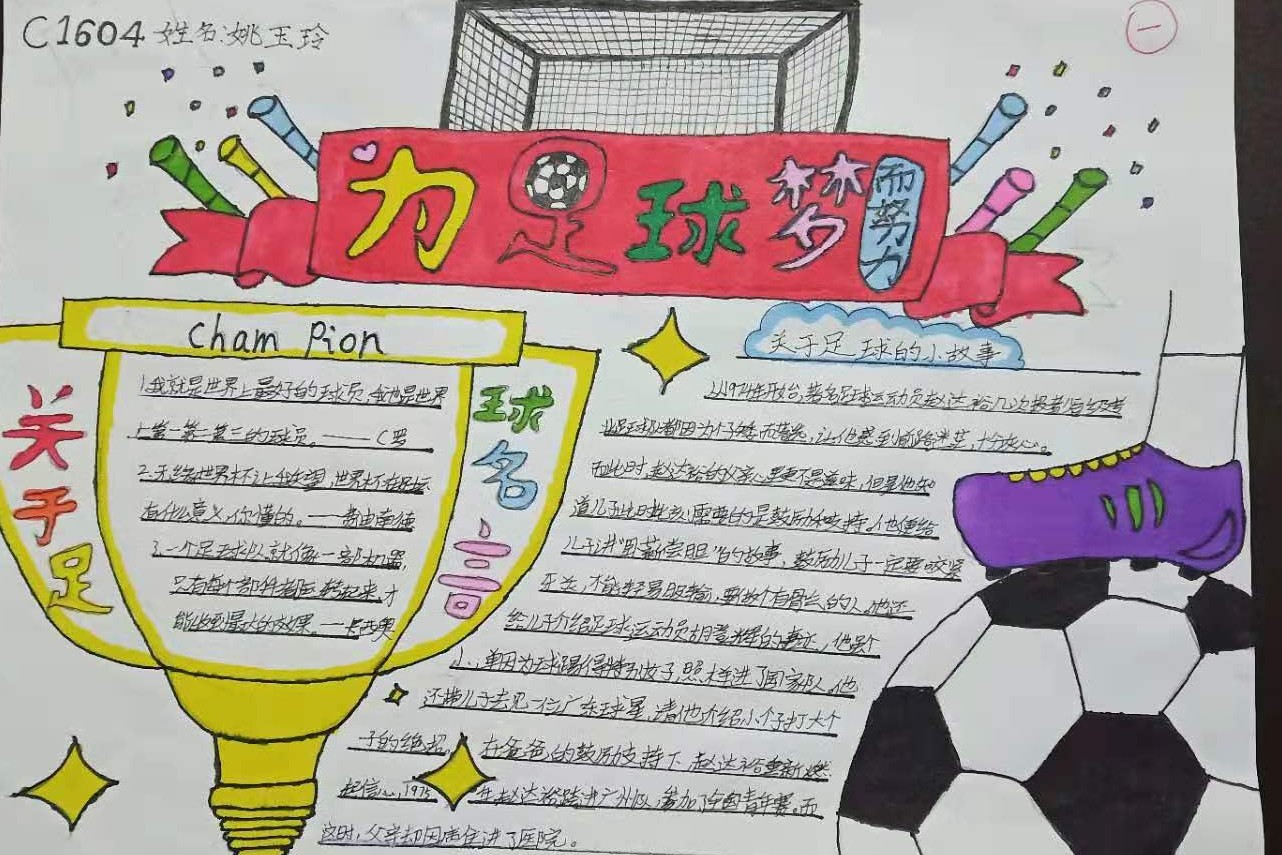 C1604 姓名:姚玉玲
一
为足球梦
而努力
Cham Pion
关于足
球名言
1.我就是世界上最好的球员,我也是世界
上第一第二第三的球员。——C罗
2.无缘世界杯让我失望,世界杯
有什么意义,你懂的。
3.一个足球队就像一部机器,
只有每个部件都 转起来,才
能收到最大的效果。
关于足球的小故事
1.1974年 ,著名足球运动员赵达裕几次报考
足球队都因为个子矮而落选,让他感到前路迷茫,十分灰心。
而此时,赵达裕的父亲心里更不是滋味,但是他知
道儿子此时 需要的是鼓励和支持。他便给
儿子讲“卧薪尝胆”的故事,鼓励儿子一定要咬紧
牙关,不能轻易服输,要做个有骨气的人。他还
给儿子介绍足球运动员 的事迹,他
小,单因为球踢得特别 ,照样进了国家队。他
还带儿子去见一位广东球星,请他介绍小个子打大个
子的绝招。在爸爸的鼓励支持下,赵达裕重新燃
起信心,1975年赵达裕 广州队,参加了全国青年赛。而
这时,父亲却因 住进了医院。